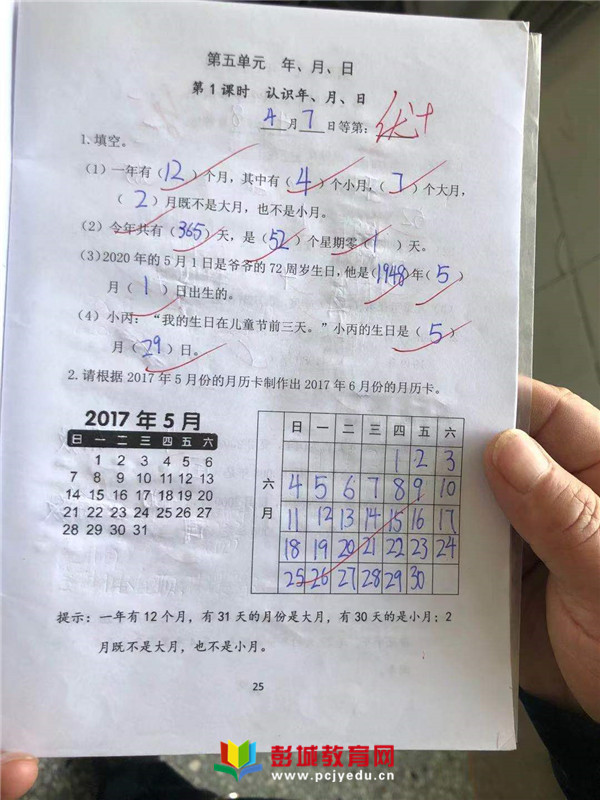 第五单元 年、月、日
第1课时 认识年、月、日
4月7日等第：优+
1.填空。
（1）一年有（12）个月，其中有（4）个小月，（7）个大月，
（2）月既不是大月，也不是小月。
（2）今年共有（365）天，是（52）个星期零（1）天。
（3）2020年的5月1日是爷爷的72周岁生日，他是（1948）年（5）
月（1）日出生的。
（4）小丙：“我的生日在儿童节前三天。”小丙的生日是（5）
月（29）日。
2.请根据2017年5月份的月历卡制作出2017年6月份的月历卡。
2017年5月
日 一 二 三 四 五 六
1 2 3 4 5 6
7 8 9 10 11 12 13
14 15 16 17 18 19 20
21 22 23 24 25 26 27
28 29 30 31
六月
日 一 二 三 四 五 六
1 2 3
4 5 6 7 8 9 10
11 12 13 14 15 16 17
18 19 20 21 22 23 24
25 26 27 28 29 30
提示：一年有12个月，有31天的月份是大月，有30天的是小月；2
月既不是大月，也不是小月。
25
彭城教育网
www.pcjyedu.cn